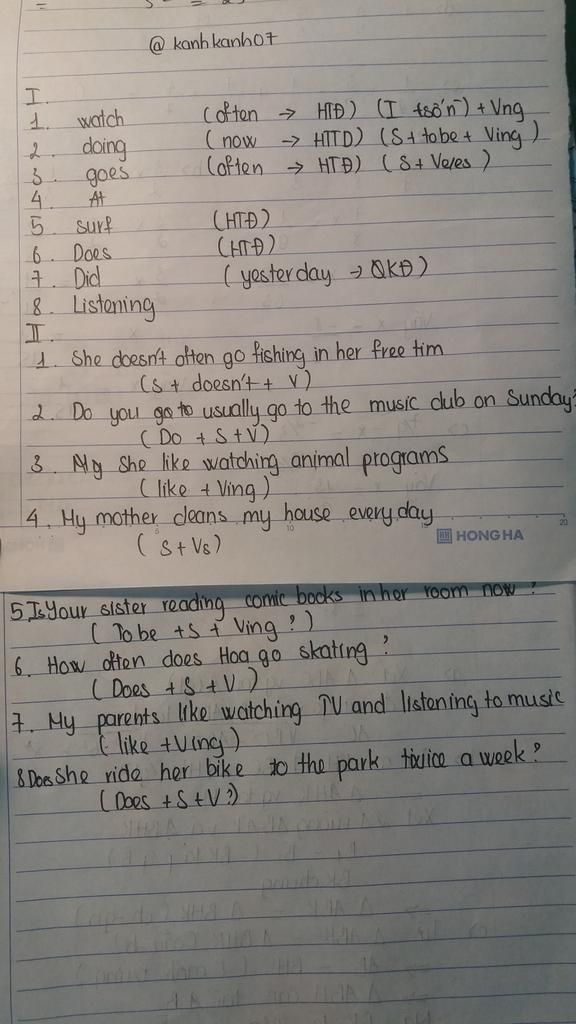 @ kanhkanh07
I.
1. watch (often → HTĐ) (I + số ñ) + Vng
2. doing (now → HTTD) (S + tobe + Ving)
3. goes (often → HTĐ) (S + Ves/es)
4. At
5. surf (HTĐ)
6. Does (HTĐ)
7. Did (yesterday → QKĐ)
8. Listening
II.
1. She doesn't often go fishing in her free tim
(S + doesn't + V)
2. Do you usually go to the music club on Sunday?
(Do + S + V)
3. She like watching animal programs
(like + Ving)
4. My mother cleans my house every day
(S + Vs)
HONG HA
5 Is Your sister reading comic books in her room now ?
(To be + S + Ving ?)
6. How often does Hoa go skating ?
(Does + S + V)
7. My parents like watching TV and listening to music
(like + Ving)
8 Does She ride her bike to the park twice a week ?
(Does + S + V ?)